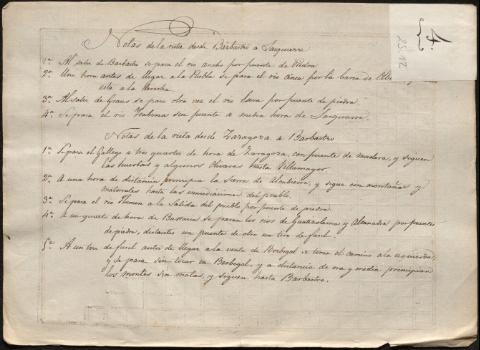 Notas de la ruta desde Barbastro a
1ª Al salir de Barbastro se pasa el rio ancho por puente de
2ª Una hora antes de llegar a la Puebla se pasa el rio Cinca por la barca de
esta a la derecha.
3ª Al salir de Graus se pasa otra vez el rio por puente de piedra.
4ª Se pasa el rio sin puente a media hora de
Notas de la ruta desde Zaragoza a Barbastro
1ª Se pasa el Gallego a tres quartos de hora de Zaragoza, con puente de madera, y siguen
las huertas y algunos Olivares hasta Villamayor.
2ª A una hora de distancia principia la Sierra de Alcubierre, y sigue con montañas y
matorrales hasta las inmediaciones del pueblo.
3ª Se pasa el rio a la Salida del pueblo por puente de piedra.
4ª A un quarto de hora de se pasan los rios de Guatizalema y Alcanadre por puentes
de piedra, distantes un puente de otro un tiro de fusil.
5ª A un tiro de fusil antes de llegar a la venta de se toma el camino a la izquierda,
y se pasa sin tocar en y a distancia de una y media principian
los montes sin matas, y siguen hasta Barbastro.
4.